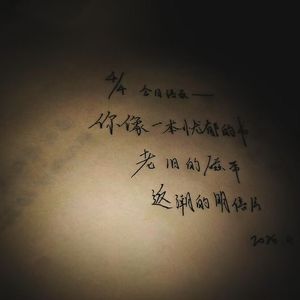 4/4 今日语录——
你像一本忧郁的书
老旧的屋
返潮的明信片